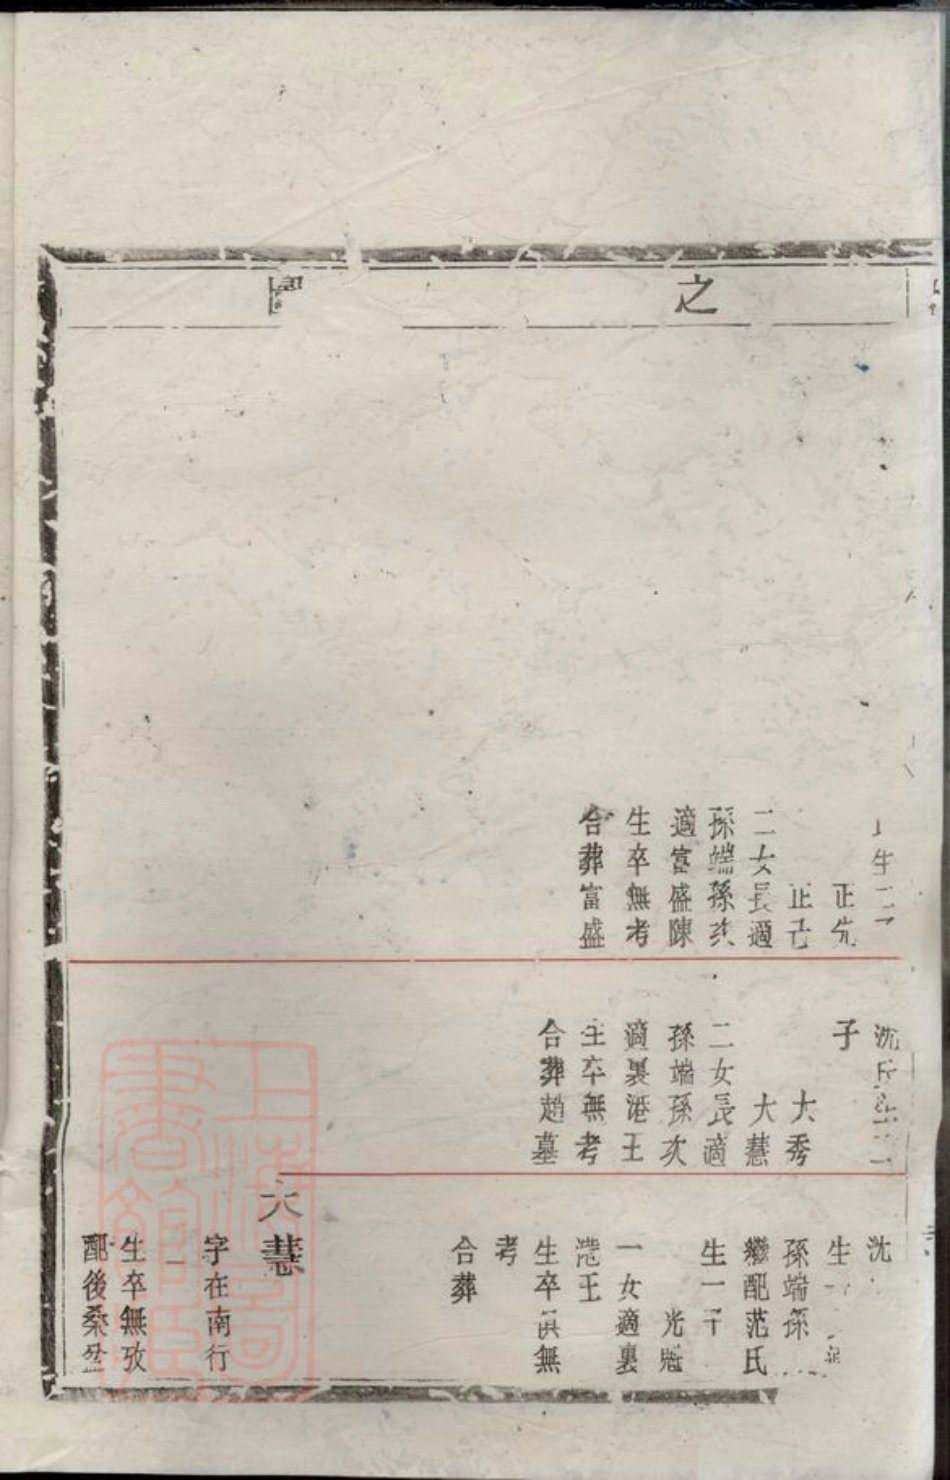 之圖
生二子
正先
正己
二女長適
孫端孫次
適富盛陳
生卒無考
合葬富盛
沈氏生二
子
大秀
大慧
二女長適
孫端孫次
適裏港王
生卒無考
合葬趙墓
沈
生
孫端孫
繼配范氏
生一子
光
一女適裏
港王
生卒俱無
考
合葬
大慧
字在南行
一
生卒無攷
配後桑盆
上海圖書館藏